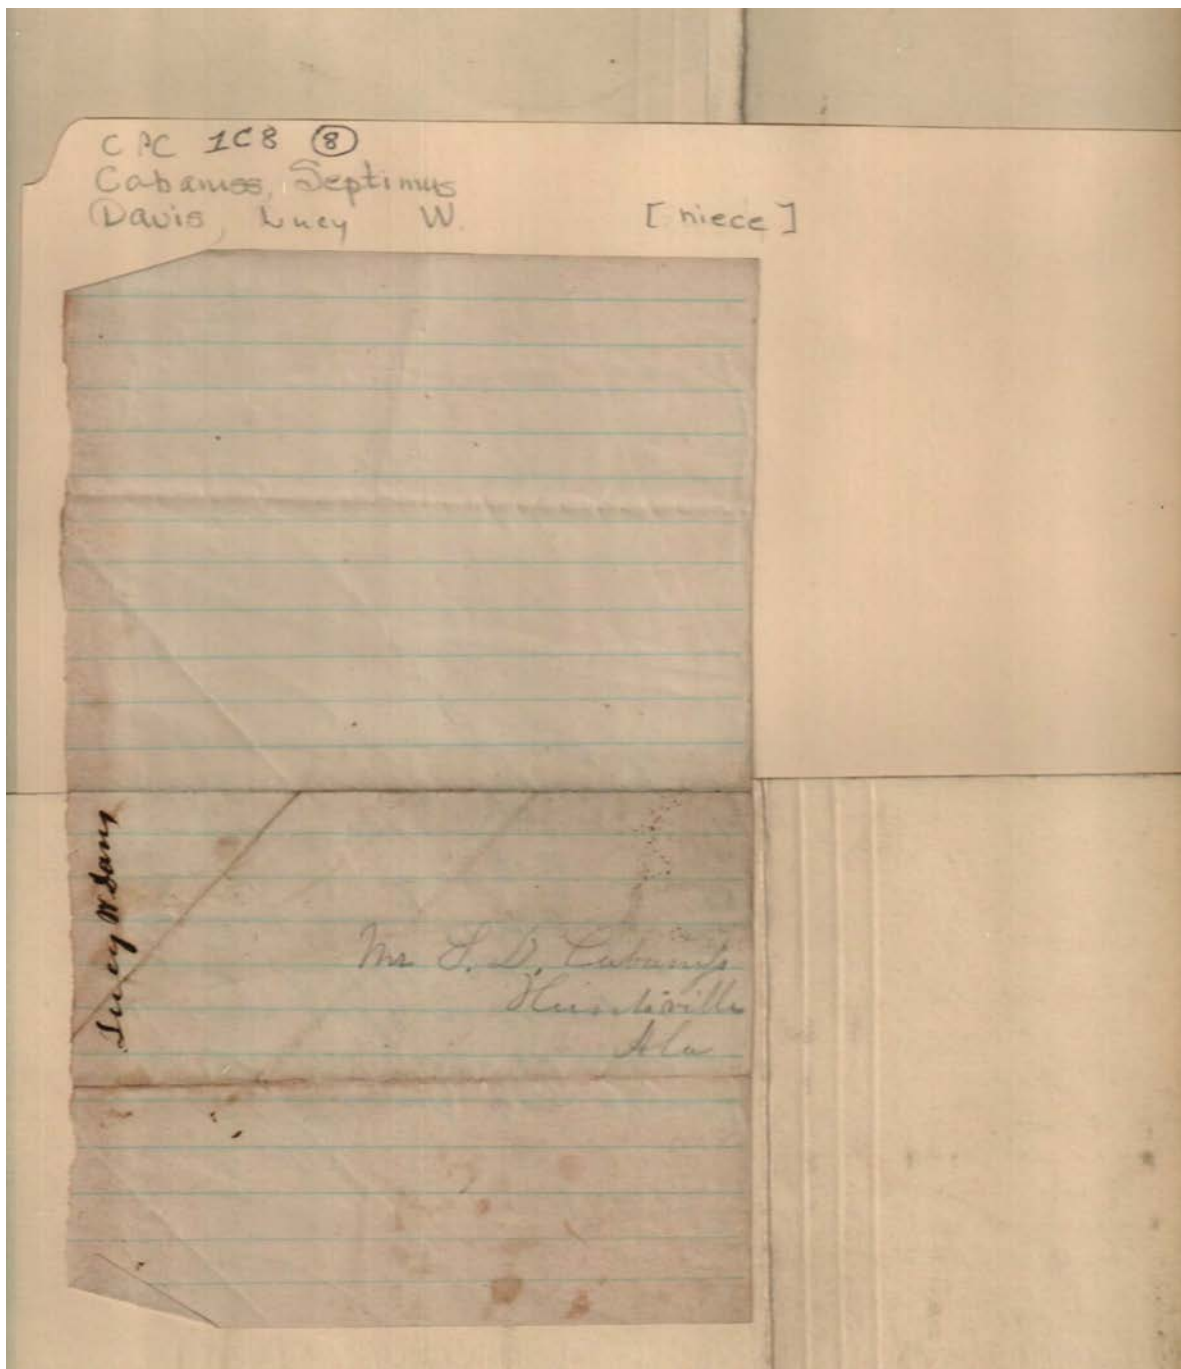 CPC 1C8 8
Cabaniss, Septimus
Davis, Lucy W. [niece]
Lucy W Davis
Mr S. D. Cabaniss
Huntsville
Ala